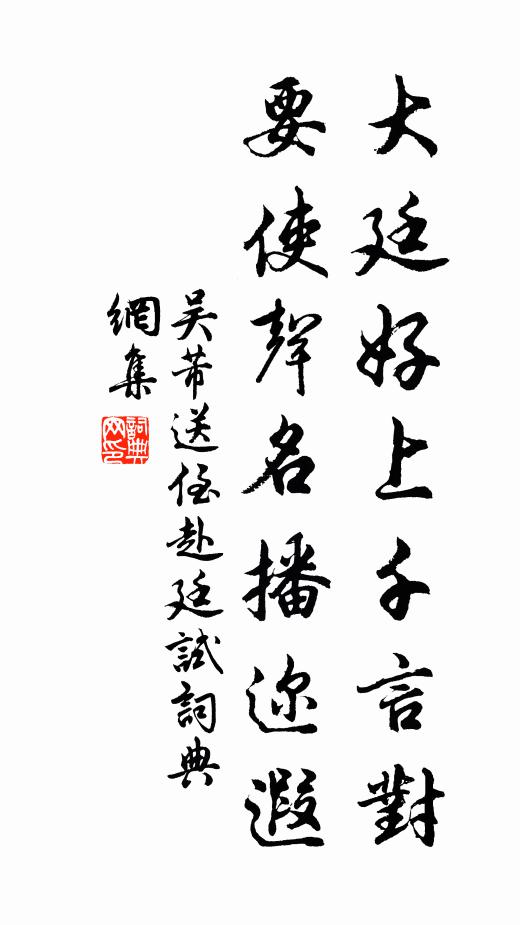 大廷好上千言對
要使聲名播迩遐
吴芾送侄赴廷試詞典
網集
詞典
网印